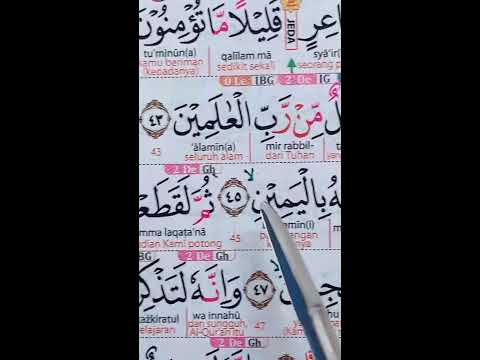 اعِرٍ قَلِيْلًا مَّا تُؤْمِنُوْنَ
JEDA
tu'minūn(a) qalīlam mā syā'ir(
kamu beriman sedikit sekali seorang p
(kepadanya)
0 Le IBG 2 De IG
مِّنْ رَّبِّ الْعٰلَمِيْنَ ٤٣
43 'ālamīn(a) mir rabbil-
seluruh alam dari Tuhan
2 De Gh
هُ بِالْيَمِيْنِ ۙ ٤٥ ثُمَّ لَقَطَعْ
mma laqaṭa'nā
dian Kami potong 45
BG 2 De Gh
٤٧ وَاِنَّهٗ لَتَذْكِرَ
tażkiratul wa innahū
elajaran dan sungguh, 47
Al-Qur'an itu
2 De Gh